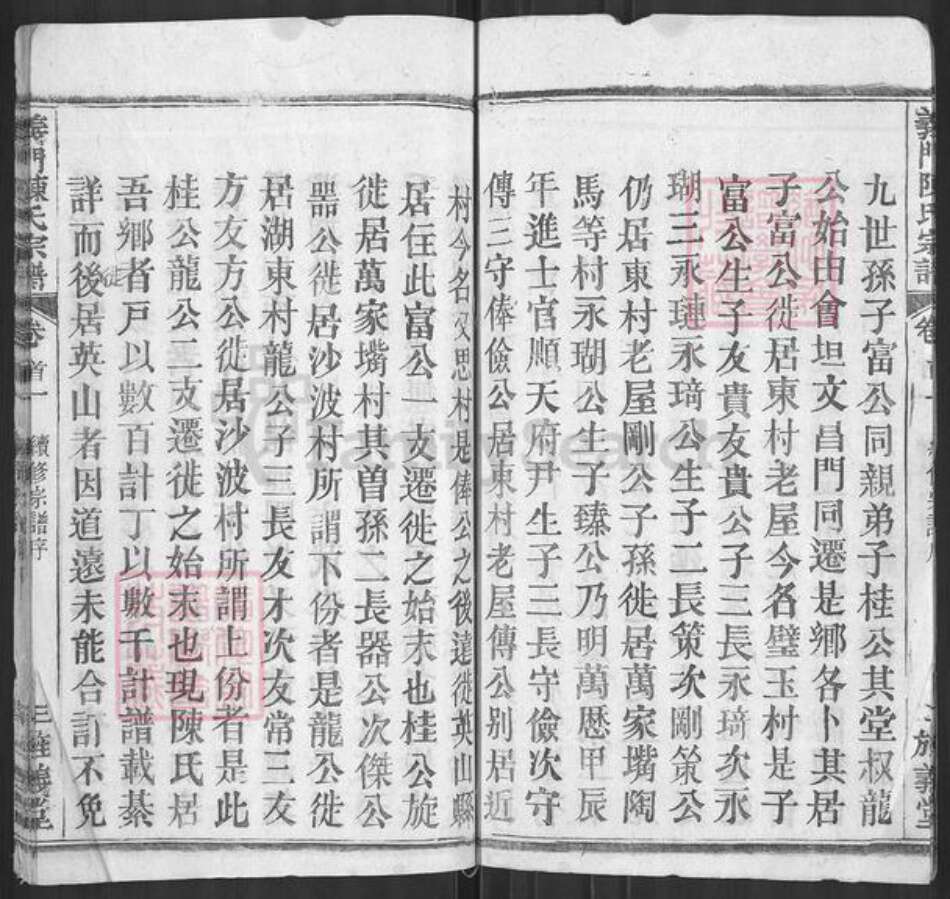 義門陳氏宗譜
卷首一
旌義堂
九世孫子富公同親弟子桂公其堂叔龍
公始由會坦文昌門同遷是鄉各卜其居
子富公徙居東村老屋今名璧玉村是子
富公生子友貴友貴公子三長永琦次永
瑚三永璉永琦公生子二長策次剛策公
仍居東村老屋剛公子孫徙居萬家嘴陶
馬等村永瑚公生子臻公乃明萬曆甲辰
年進士官順天府尹生子三長守儉次守
傳三守俸儉公居東村老屋傳公別居近
村今名文思村是俸公之後遠徙英山縣
居住此富公一支遷徙之始末也桂公旋
徙居萬家嘴村其曾孫二長器公次傑公
噐公徙居沙波村所謂下份者是龍公徙
居湖東村龍公子三長友才次友常三友
方友方公徙居沙波村所謂上份者是此
桂公龍公二支遷徙之始末也現陳氏居
吾鄉者戶以數百計丁以數千計譜載綦
詳而後徙居英山者因道遠未能合訂不免
義門陳氏宗譜
卷首一
續修宗譜序
三旌義堂
FamilySearch